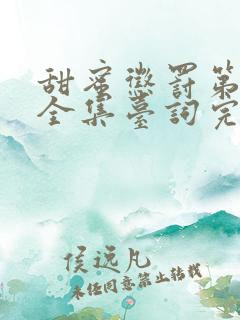 甜蜜懲罰第
全集臺詞完
侯远凡
未经同意禁止转载